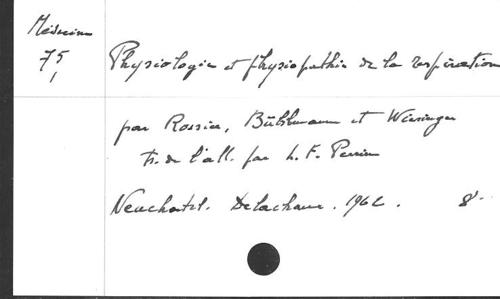 Médecine
75
/
Physiologie et physiopathie de la respiration
par Rossier, Bühlmann et Wiesinger
tr. de l'all. par L. F. Perrin
Neuchatel. Delachaux. 1962. 8°